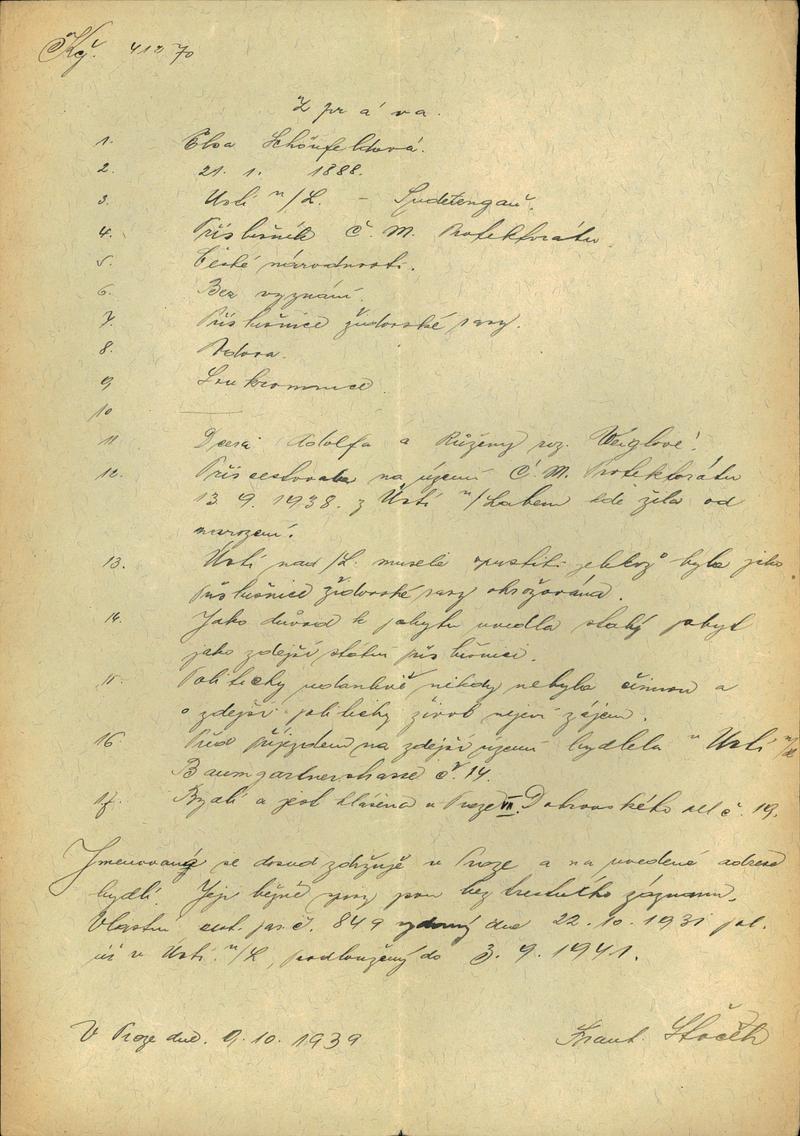 Kč. 41270
Zpráva.
1. Elsa Schönfeldová.
2. 21. 1. 1888.
3. Ústí n/L. – Sudetengau.
4. Příslušník Č. M. Protektorátu
5. České národnosti.
6. Bez vyznání.
7. Příslušnice židovské rasy.
8. Vdova.
9. Soukromnice
10
11 Dcera Adolfa a Růženy roz. Weiglové.
12. Přicestovala na území Č. M. Protektorátu
13. 9. 1938. z Ústí n/Labem kde žila od
narození.
13. Ústí nad /L. musela opustiti jelikož byla jako
příslušnice židovské rasy ohrožována.
14. Jako důvod k pobytu uvedla stálý pobyt
jako zdejší státní příslušnice.
15. Politicky nikdy nebyla činnou a
o zdejší politický život nejeví zájem.
16 Před příjezdem na zdejší území bydlela v Ústí n/L
Baumgartnerstrasse č. 14.
17. Bydlí a jest hlášena v Praze VII. Dobrovského ul. č. 19.
Jmenovaná se dosud zdržuje v Praze a na uvedené adrese
bydlí. Její běžné spisy jsou bez trestního záznamu.
Vlastní cest. pas č. 849 vydaný dne 22. 10. 1931 pol.
v Ústí n/L, prodloužený do 3. 9. 1941.
V Praze dne. 9. 10. 1939
Frant.